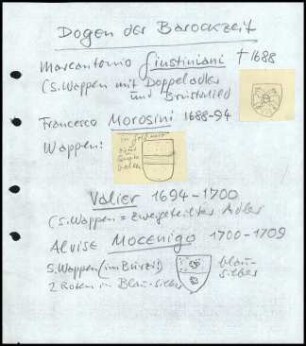 Dogen der Barockzeit
Marcantonio Giustiniani † 1688
(s. Wappen mit Doppeladler
und Brustschild
Francesco Morosini 1688-94
Wappen:
Valier 1694-1700
(s. Wappen = zweigeteilter Adler
Alvise Mocenigo 1700-1709
s. Wappen (im
blau-
silber
2 Rosen in Blau-silber